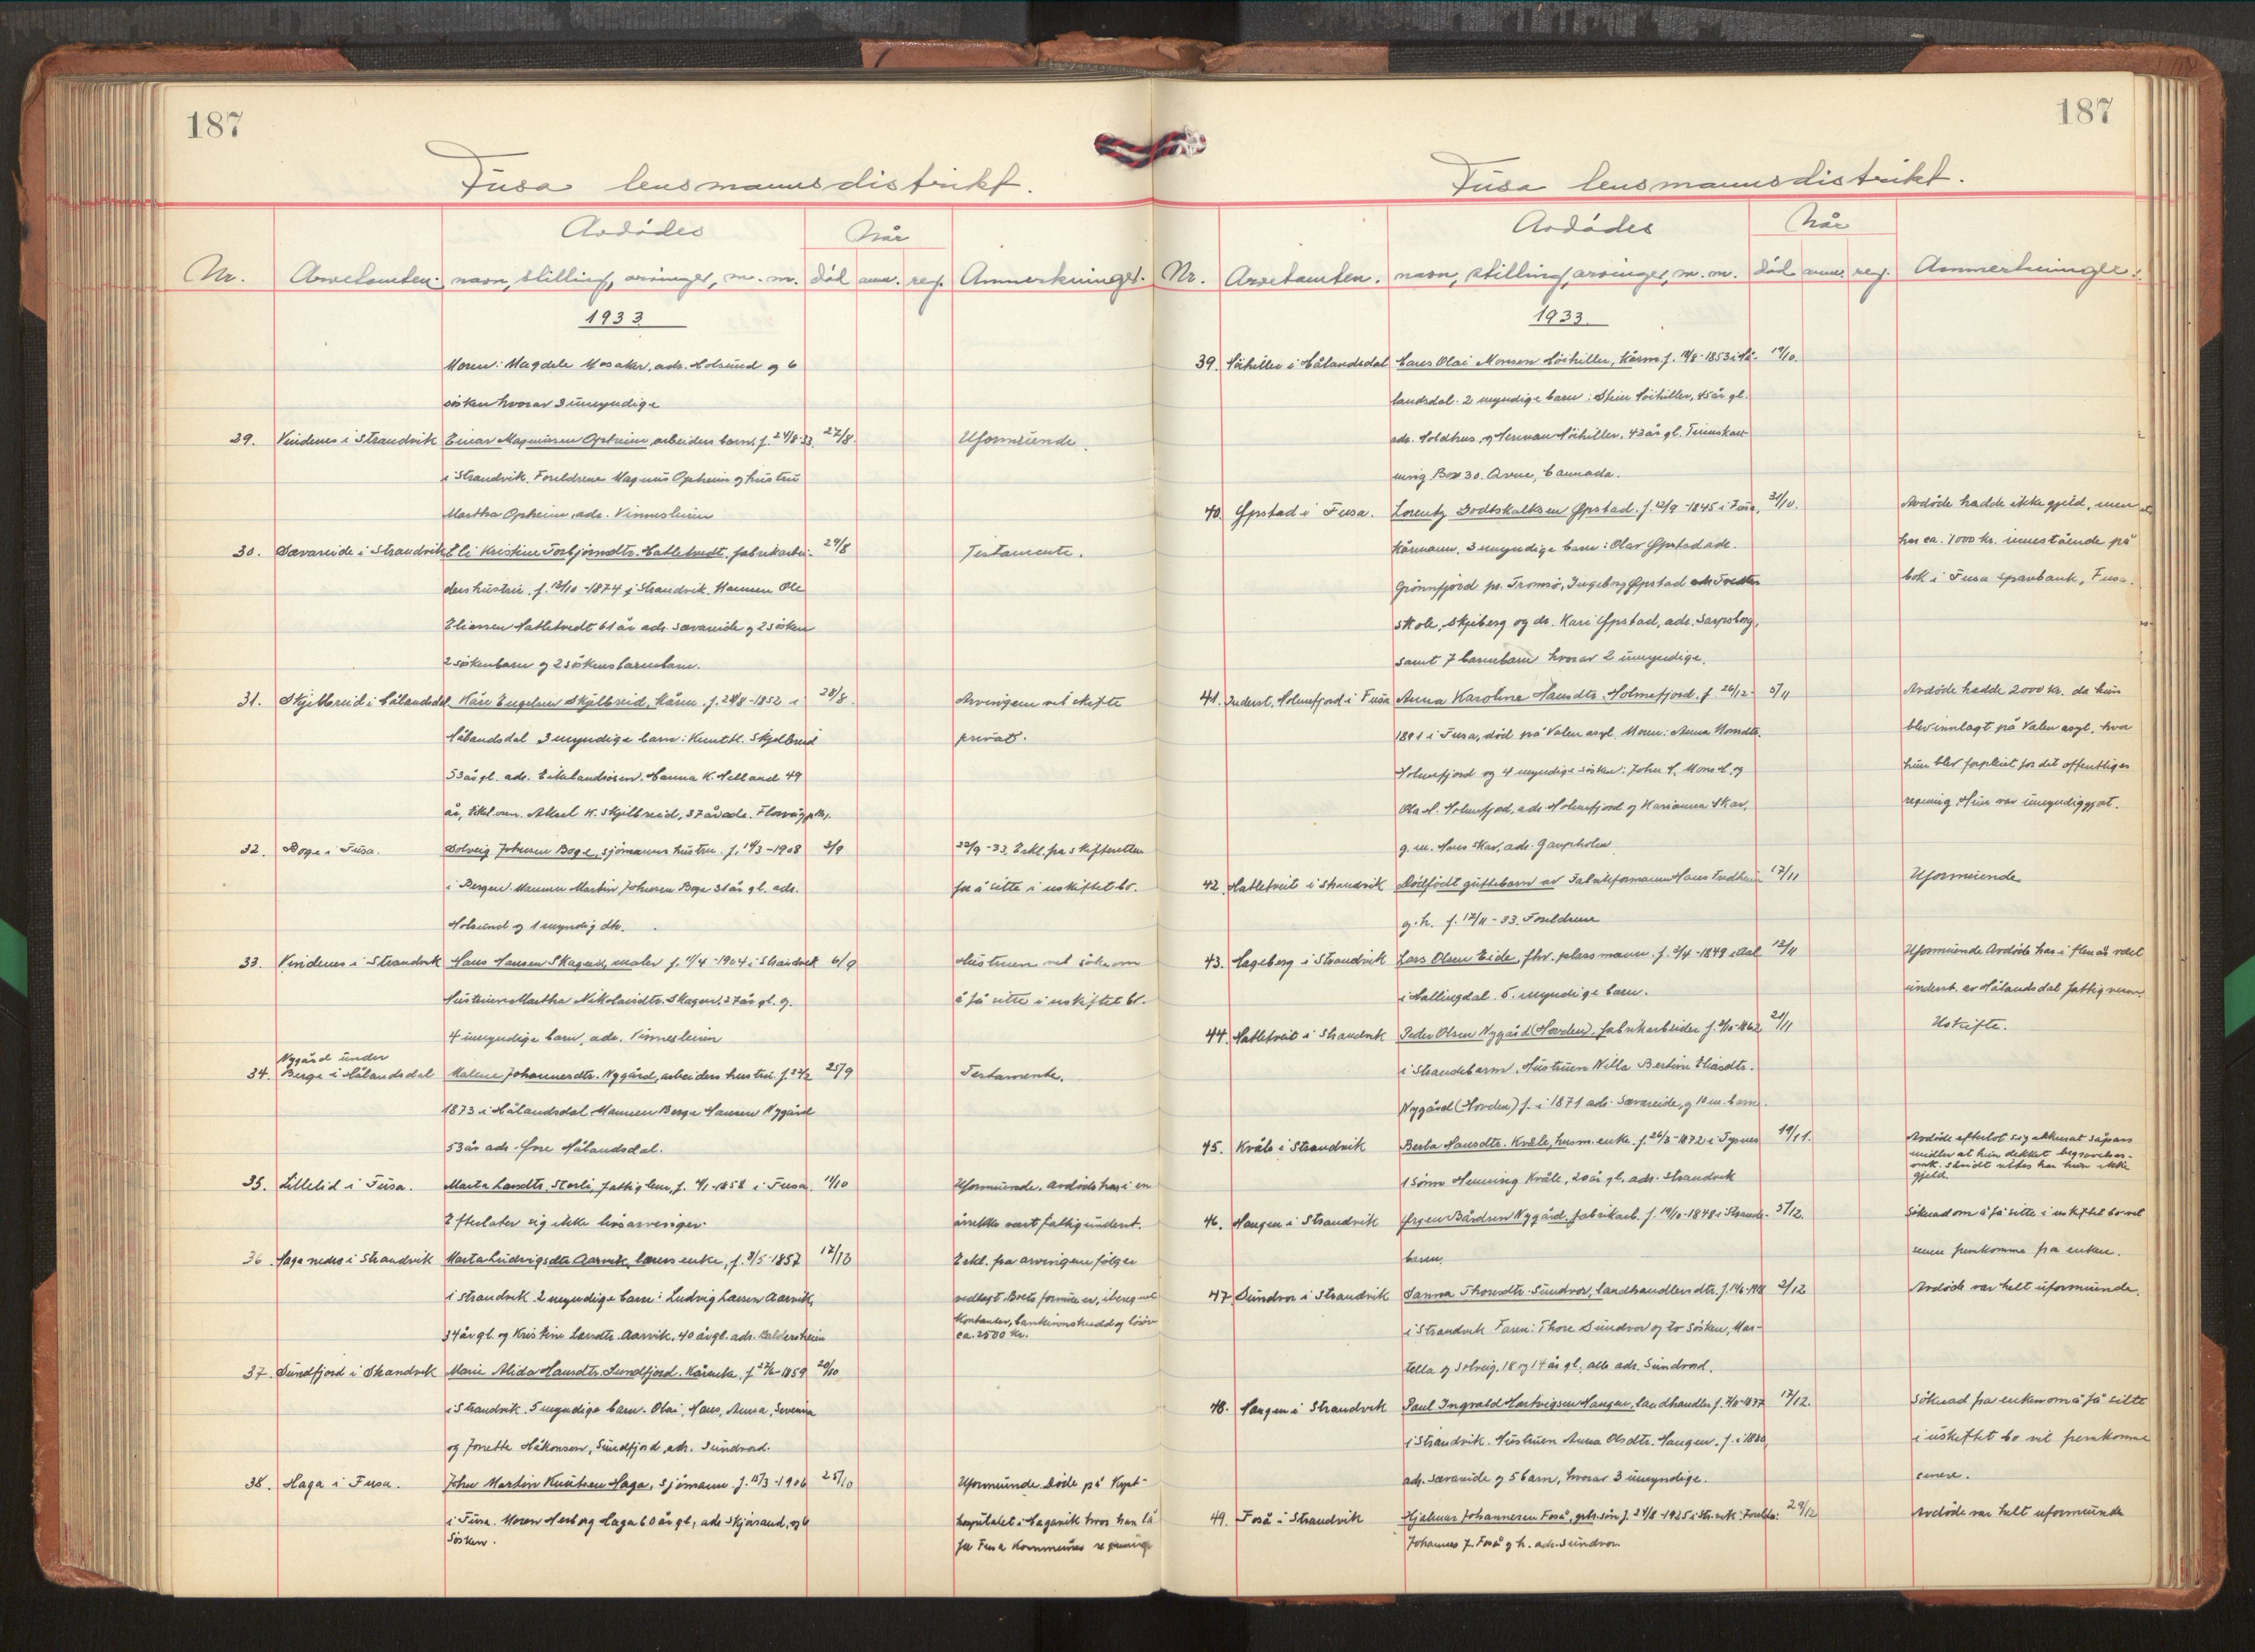 187
Fusa lensmannsdistrikt.
Avdødes
Når
Nr. Arvetomten. navn, stilling, arvinger, m. m. død anm. reg. Anmerkninger.
1933
Moren: Magdele Mosaker, adr. Holsund og 6
søsken hvorav 3 umyndige
29. Vindenes i Strandvik Einar Magnussen Opheim, arbeiders barn, f. 24/8-33 27/8. Uformuende.
i Strandvik. Foreldrene Magnus Opheim og hustru
Martha Opheim, adr. Vinnesleiren
30. Sævareide i Strandvik Eli Kristine Torbjørnsdtr. Hatletvedt, fabrikarbei- 29/8 Testamente.
ders hustru, f. 12/10-1874 i Strandvik. Mannen Ole
Eliassen Hatletvedt 61 år adr. Sævareide og 2 søsken
2 søskenbarn og 2 søskens barnebarn.
31. Skjelbreid i Hålandsdal Kåre Engelsen Skjelbreid, kårm. f. 24/8-1852 i 28/8. Arvingene vil skifte
Hålandsdal 3 myndige barn: Knut K. Skjelbreid privat.
53 år gl. adr. Eikelandsosen. Hanna K. Helland 49
år, Eikel.osen. Aksel K. Skjelbreid, 37 år adr.
32. Boge i Fusa. Solveig Johnsen Boge, sjømanns hustru. f. 14/3-1908 3/9 22/9-33. Erkl. fra skifteretten
i Bergen. Mannen Martin Johnsen Boge 31 år gl. adr. for å sitte i uskiftet bo.
Holsund og 1 umyndig dtr.
33. Vindenes i Strandvik Hans Hansen Skagen, maler f. 11/4-1904 i Strandvik 6/9 Hustruen vil søke om
Hustruen Martha Nikolaisdtr. Skagen, 27 år gl. og å få sitte i uskiftet bo.
4 umyndige barn, adr. Vinnesleiren
Nygård under
34. Berge i Hålandsdal Malene Johannesdtr. Nygård, arbeiders hustru. f. 22/2 25/9 Testamente.
1873 i Hålandsdal Mannen Berge Hansen Nygård
53 år adr. Øvre Hålandsdal.
35. Lillelid i Fusa. Marta Larsdtr. Storli, fattiglem, f. 4/1-1858 i Fusa. 11/10 Uformuende. Avdøde har i en
Efterlater sig ikke livsarvinger. årrekke vært fattigunderst.
36. Haga nedre i Strandvik Marta Ludvigsdtr. Aarvik, lærers enke, f. 8/5-1857 12/10 Erkl. fra arvingene følger
i Strandvik 2 myndige barn: Ludvig Larsen Aarvik, vedlagt Boets formue er, iberegnet
34 år gl. og Kristine Larsdtr. Aarvik, 40 år gl. adr. Baldersheim kontanter, bankinnskudd og løsøre
ca. 2500 kr.
37. Sundfjord i Strandvik Marie Alida Hansdtr. Sundfjord. Kårenke, f. 27/6-1859 20/10
i Strandvik. 5 myndige barn. Olai, Hans, Anna, Severina
og Jonette Håkonsen, Sundfjord, adr. Sundvord.
38. Haga i Fusa. John Martin Knutsen Haga, sjømann. f. 15/3-1906 25/10 Uformuende. Døde på Kyst-
i Fusa. Moren Herborg Haga 60 år gl, adr. Skjørsand, og 6 hospitalet i Hagavik hvor han lå
søsken. for Fusa kommunes regning
187
Fusa lensmannsdistrikt.
Avdødes
Når
Nr. Arvetomten. navn, stilling, arvinger, m. m. død anm. reg. Anmerkninger.
1933.
39. i Hålandsdal Hans Olai Monsen kårm. f. 14/8-1853 i Hå- 19/10.
landsdal. 2 myndige barn: 45 år gl.
adr. Holdhus, og Herman 43 år gl.
Box 30. Cannada.
40. Øpstad i Fusa. Lorentz Godtskalksen Øpstad. f. 12/9-1845 i Fusa, 30/10. Avdøde hadde ikke gjeld, men
kårmann. 3 myndige barn: Olav Øpstad adr. har ca. 1000 kr. innestående på
Grønnfjord pr. Tromsø, Ingeborg Øpstad bok i Fusa sparebank, Fusa.
skole, Skjeberg og dr. Kari Øpstad, adr. Sarpsborg,
samt 7 barnebarn hvorav 2 umyndige.
41. Inderst. Holmefjord i Fusa Anna Karoline Hansdtr. Holmefjord. f 26/12- 5/11 Avdøde hadde 2000 kr. da hun
1891 i Fusa, død på Valen asyl. Moren: Anna Monsdtr. blev innlagt på Valen asyl, hvor
Holmefjord og 4 myndige søsken: John H. Mons H. og hun blev forpleiet for det offentliges
Ola H. Holmefjord, adr. Holmefjord og Marianna Skar, regning. Hun var umyndiggjort.
g.m. Hans Skar, adr. Gaupholm
42. Hatletveit i Strandvik Dødfødt guttebarn av Fabrikformann Hans 17/11 Uformuende
g. h. f. 17/11-33. Foreldrene
43. Hageberg i Strandvik Lars Olsen Eide, fhv. plassmann. f. 3/4-1849 i Aal 12/11 Uformuende Avdøde har i flere år vært
i Hallingdal. 5. myndige barn. underst. av Hålandsdal fattigvesen.
44. Hatletveit i Strandvik Peder Olsen Nygård (Hovden), fabrikarbeider f. 9/10-1862 21/11 Uskifte.
i Strandebarm. Hustruen Nilla Bertine Eliasdtr.
Nygård (Hovden) f. i 1871 adr. Sævareide, og 10 m. barn.
45. Kvåle i Strandvik Berta Hansdtr. Kvåle, husm. enke. f. 26/3-1872 i Tysnes 19/11. Avdøde efterlot sig akkurat såpass
midler at hun dekket begravelses-
omk. såvidt vites har hun ikke
gjeld.
1 sønn Henning Kvåle, 20 år gl. adr. Strandvik
46. Haugen i Strandvik Ørjen Bårdsen Nygård, fabrikarb. f. 14/10-1848 i Strande- 3/12. Søknad om å få sitte i uskiftet bo vil
barm. senere fremkomme fra enken.
47. Sundvor i Strandvik Sanna Thorsdtr. Sundvor, landhandlers dtr. f. 14/6-1918 2/12 Avdøde var helt uformuende.
i Strandvik Faren: Thore Sundvor og to søsken, Mar-
tella og Solveig, 18 og 14 år gl. alle adr. Sundvord.
48. Haugen i Strandvik Paul Ingvald Hartvigsen Haugen, landhandler f. 7/11-1877 17/12. Søknad fra enken om å få sitte
i Strandvik. Hustruen Anna Olsdtr. Haugen. f. i 1880, i uskiftet bo vil fremkomme
adr. Sævareide og 5 barn, hvorav 3 umyndige. senere.
49. Foså i Strandvik Hjalmar Johannesen Foså, grbr. sønn f. 24/8-1925 i Str.vik. Foreldre: 29/12 Avdøde var helt uformuende
Johannes J. Foså og h. adr. Sundvor.